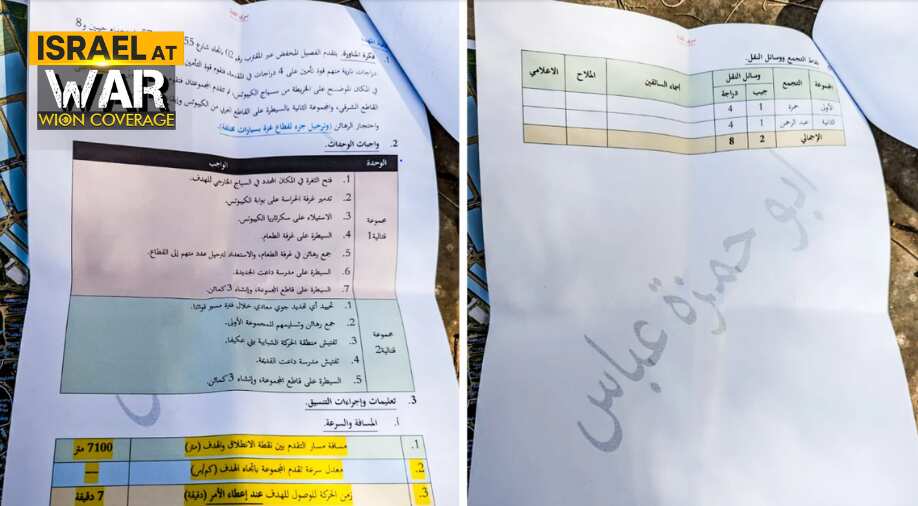 ISRAEL AT
WAR
WION COVERAGE
فكرة المناورة: يتقدم الفصيل المخفض عبر المقترب رقم
دراجات نارية منهم قوة تأمين على 4 دراجات في المقدمة، فتقوم قوة التأمين
في المكان الموضح على الخريطة من سياج الكيبوتس، ثم تتقدم المجموعتان فتقوم
القاطع الشرقي، والمجموعة الثانية بالسيطرة على القاطع الغربي من الكيبوتس
واحتجاز الرهائن (وترحيل جزء لقطاع غزة بسيارات مختلفة).
2. واجبات الوحدات:
الوحدة الواجب
مجموعة قتالية1
1. فتح الثغرة في المكان المحدد في السياج الخارجي للهدف.
2. تدمير غرفة الحراسة على بوابة الكيبوتس.
3. الاستيلاء على سكرتاريا الكيبوتس.
4. السيطرة على غرفة الطعام.
5. جمع رهائن في غرفة الطعام، والاستعداد لترحيل عدد منهم إلى القطاع.
6. السيطرة على مدرسة داعت الجديدة.
7. السيطرة على قاطع المجموعة، وإنشاء 3 كمائن.
مجموعة قتالية2
1. تحييد أي تهديد جوي معادي خلال فترة مسير قواتنا.
2. جمع رهائن وتسليمهم للمجموعة الأولى.
3. تفتيش منطقة الحركة الشبابية بني عكيفا.
4. تفتيش مدرسة داعت القديمة.
5. السيطرة على قاطع المجموعة، وإنشاء 3 كمائن.
3. تعليمات وإجراءات التنسيق:
أ. المسافة والسرعة:
1. مسافة مسار التقدم بين نقطة الانطلاق والهدف (متر) 7100 متر
2. معدل سرعة تقدم المجموعة باتجاه الهدف (كم/س) —
3. زمن الحركة للوصول للهدف عند إعطاء الأمر (دقيقة) 7 دقيقة
نقاط التجمع ووسائل النقل:
المجموعة التجمع وسائل النقل أسماء السائقين الملاح الاعلامي
جيب دراجة
الأولى حمزة 1 4
الثانية عبد الرحمن 1 4
الإجمالي 2 8
ابو حمزة عباس